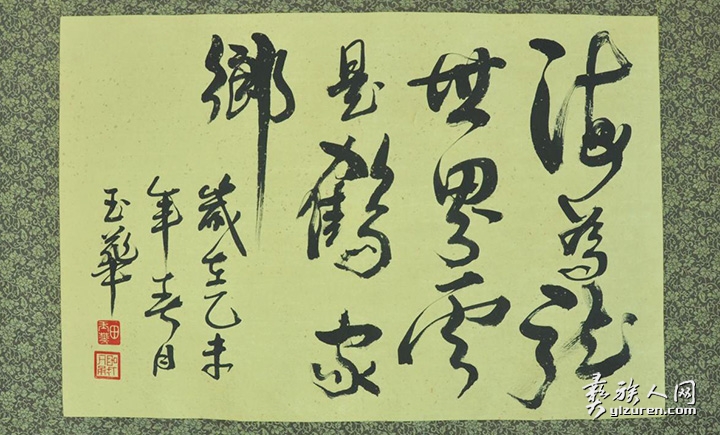 海为龙
世界云
是鹤家
鄉
歲在乙未
年春月
玉華
彝族人网
yizuren.com